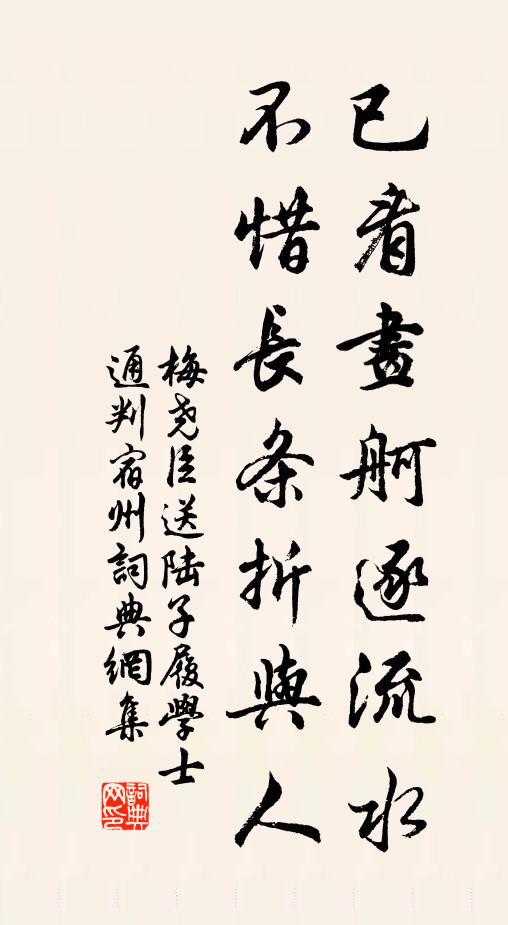 已看畫舸逐流水
不惜長条折與人
梅尧臣送陆子履學士
通判宿州詞典網集
詞典网印